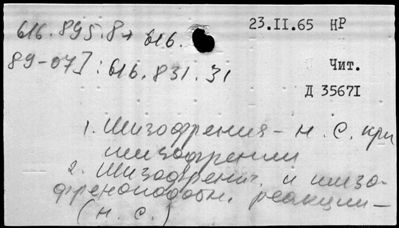 616.895.8+616.
23.II.65 НР
89-07]:616.831.31
Чит.
Д 35671
1. Шизофрения - н. с. при
шизофрении
2. Шизофрения и шизо-
френоподобн. реакции -
(н. с.)